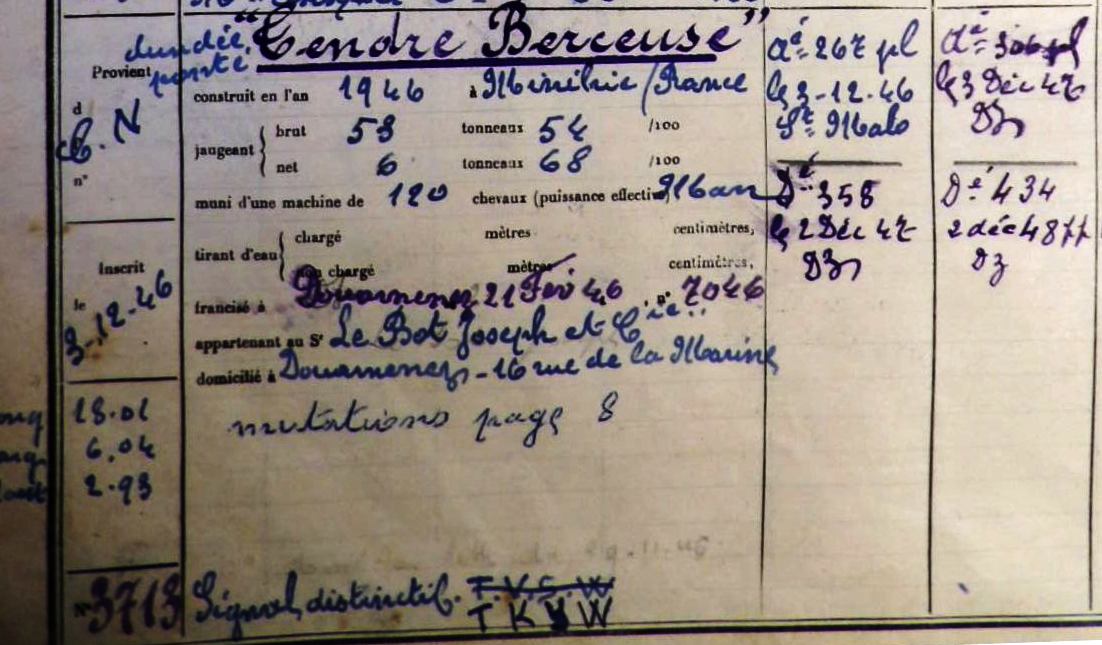 dundée
ponté
"Tendre Berceuse"
Provient
d
C. N
n°
construit en l'an 1946 à Minihic / Rance
jaugeant { brut 53 tonneaux 54 /100
net 6 tonneaux 68 /100
muni d'une machine de 120 chevaux (puissance effective) Man
tirant d'eau { chargé mètres centimètres,
non chargé mètres centimètres,
Inscrit
le
3-12-46
francisé à Douarnenez 21 Fév 46, n° 7046
appartenant au Sr Le Bot Joseph et Cie
domicilié à Douarnenez - 16 rue de la Marine
mutations page 8
18.01
6.04
2.93
N° 3713 Signal distinctif. T.V.S.W
T K Y W
Dé 267 pl
le 3-12-46
St Malo
Dé 358
le 2 Déc 47
Dz
Dé 306 pl
le 3 Déc 47
Dz
Dé 434
2 déc 48 pp
Dz